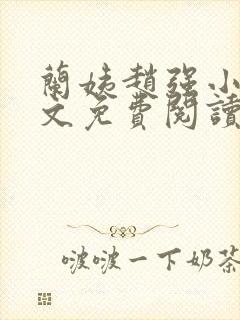 蘭姨趙强小
文免費閱讀
啵啵一下奶茶